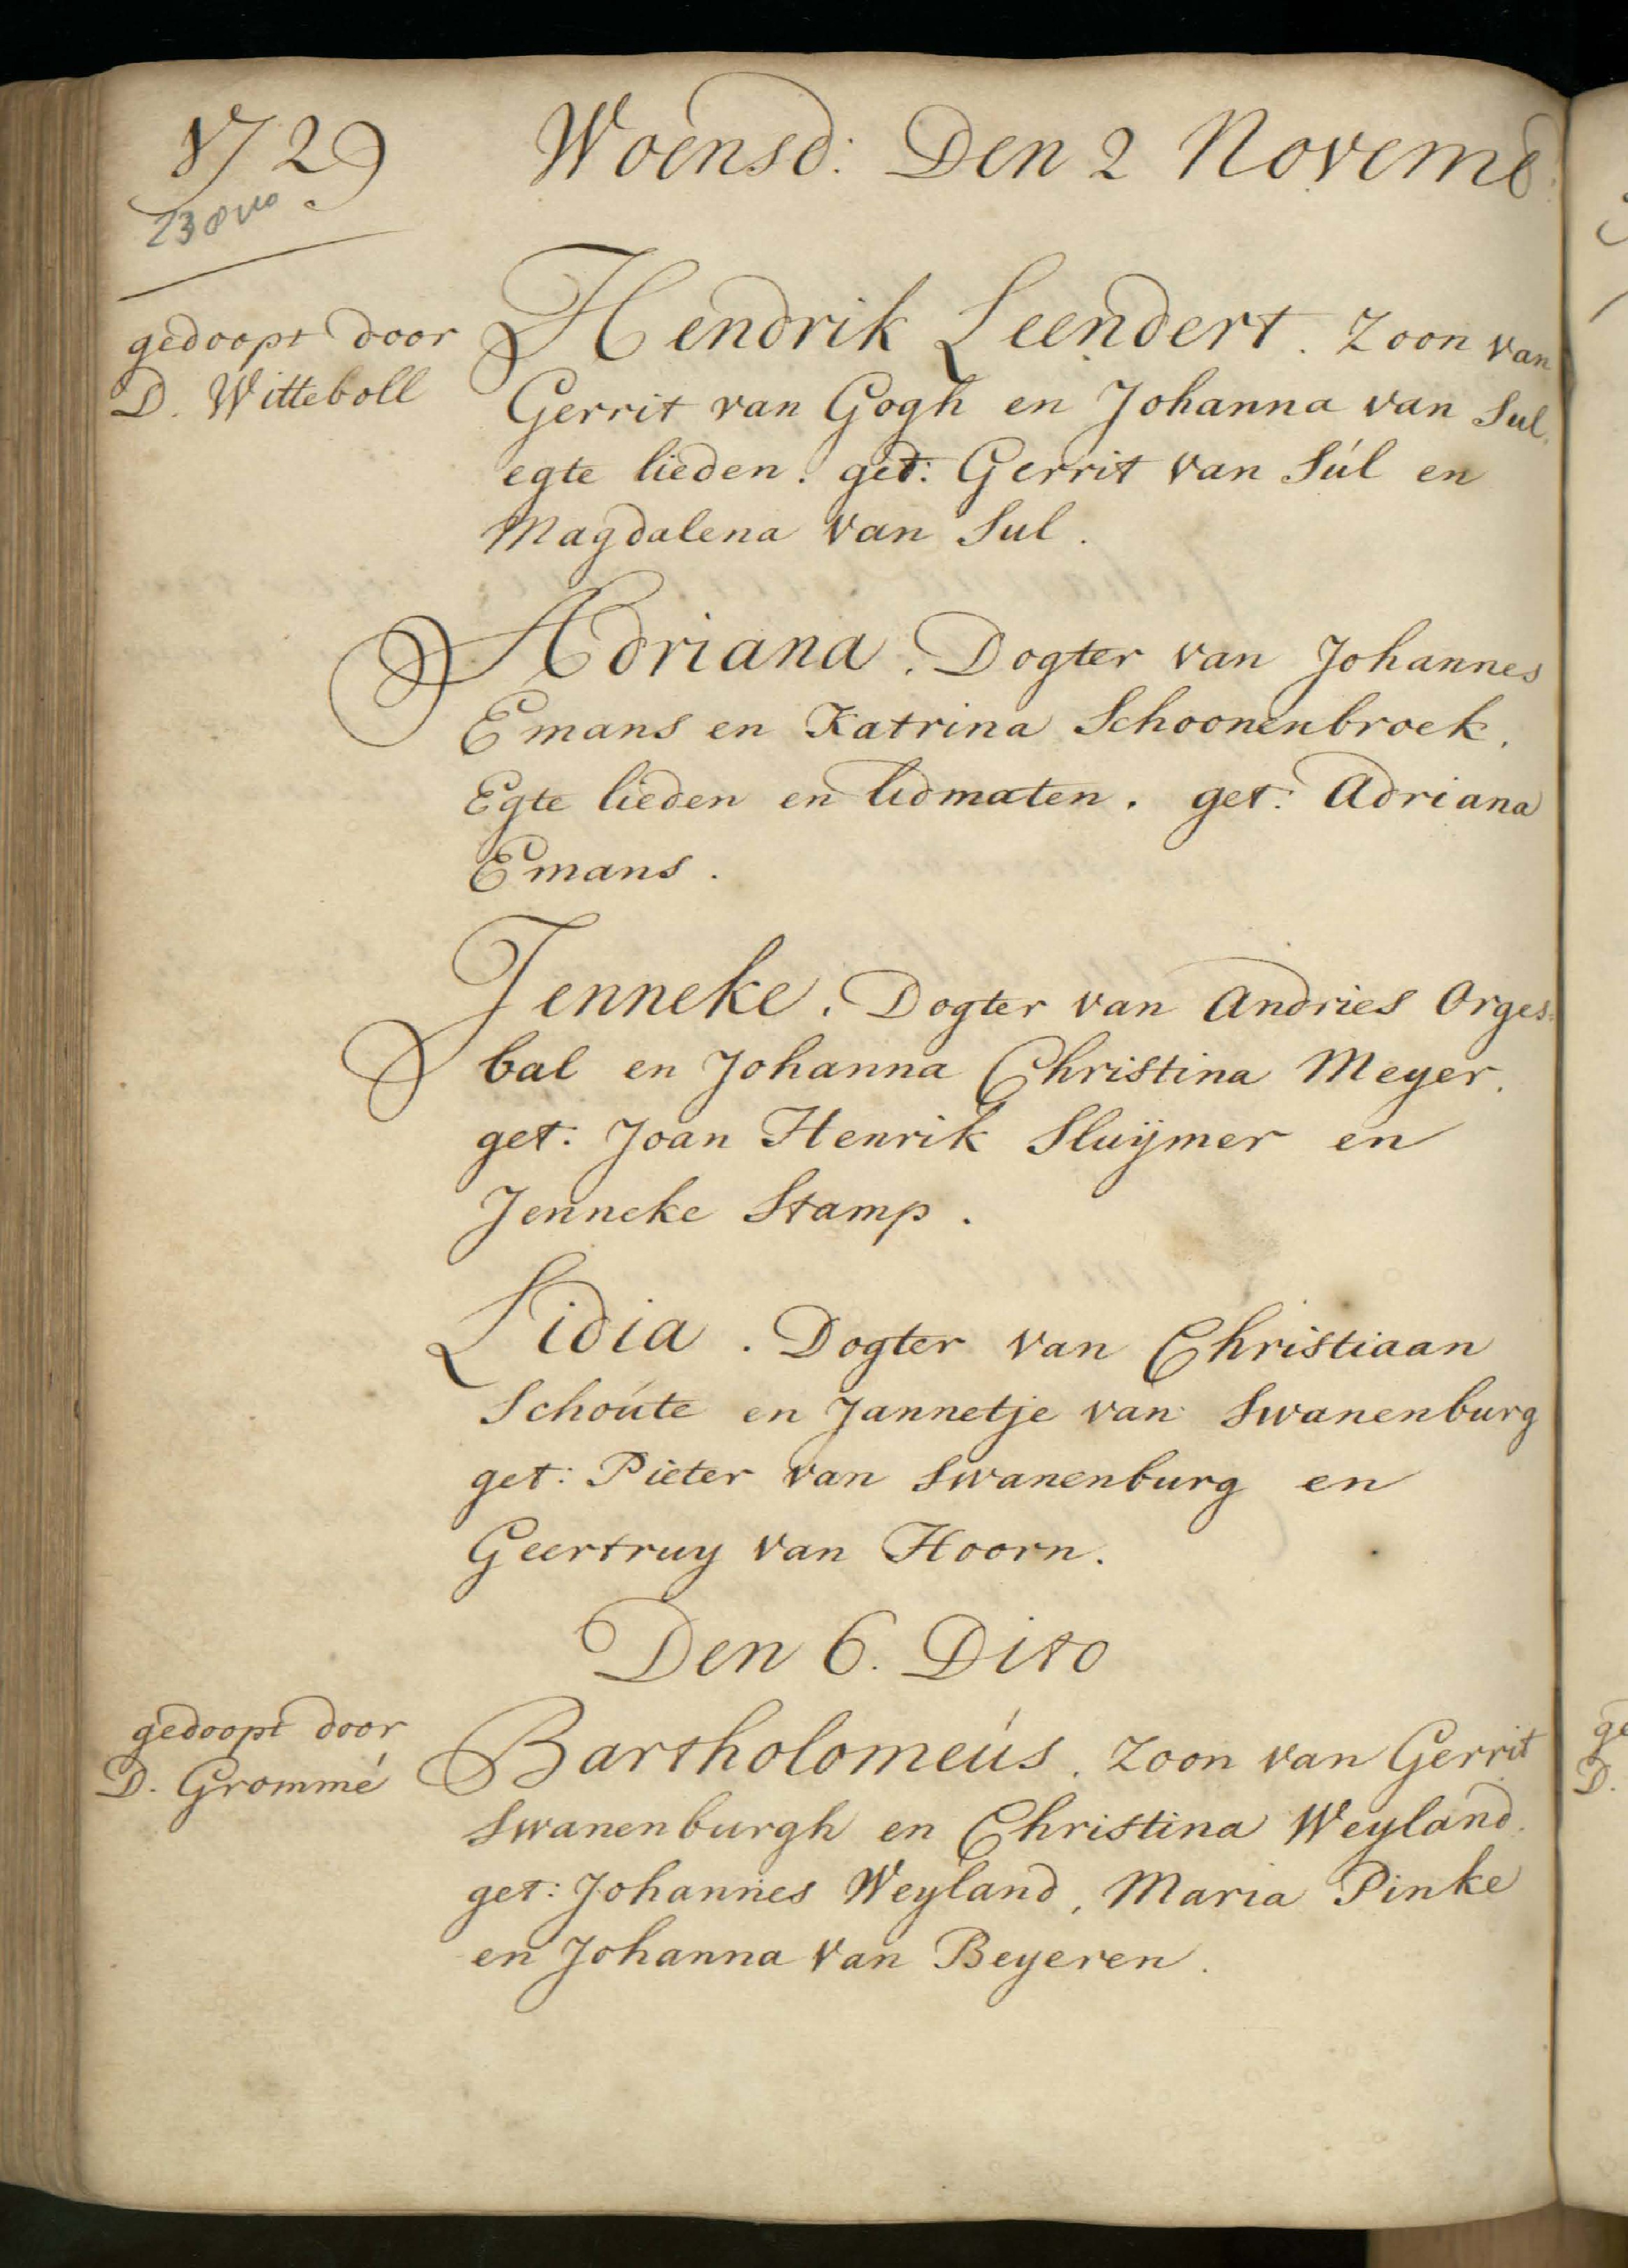 1729 Woensd: Den 2 Novemb:
238vo
gedoopt door
D. Witteboll
Hendrik Leendert. Zoon van
Gerrit van Gogh en Johanna van Sul.
egte lieden. get: Gerrit van Súl en
Magdalena van Sul.
Adriana. Dogter van Johannes
Emans en Katrina Schoonenbroek.
Egte lieden en lidmaten. get: Adriana
Emans.
Jenneke. Dogter van Andries Orges=
bal en Johanna Christina Meyer.
get: Joan Henrik Sluijmer en
Jenneke Stamp.
Lidia. Dogter van Christiaan
Schoúte en Jannetje van Swanenburg
get: Pieter van Swanenburg en
Geertruy van Hoorn.
Den 6. Dito
gedoopt door
D. Grommé
Bartholomeús. Zoon van Gerrit
Swanenburgh en Christina Weyland.
get: Johannes Weyland, Maria Pinke
en Johanna van Beyeren.